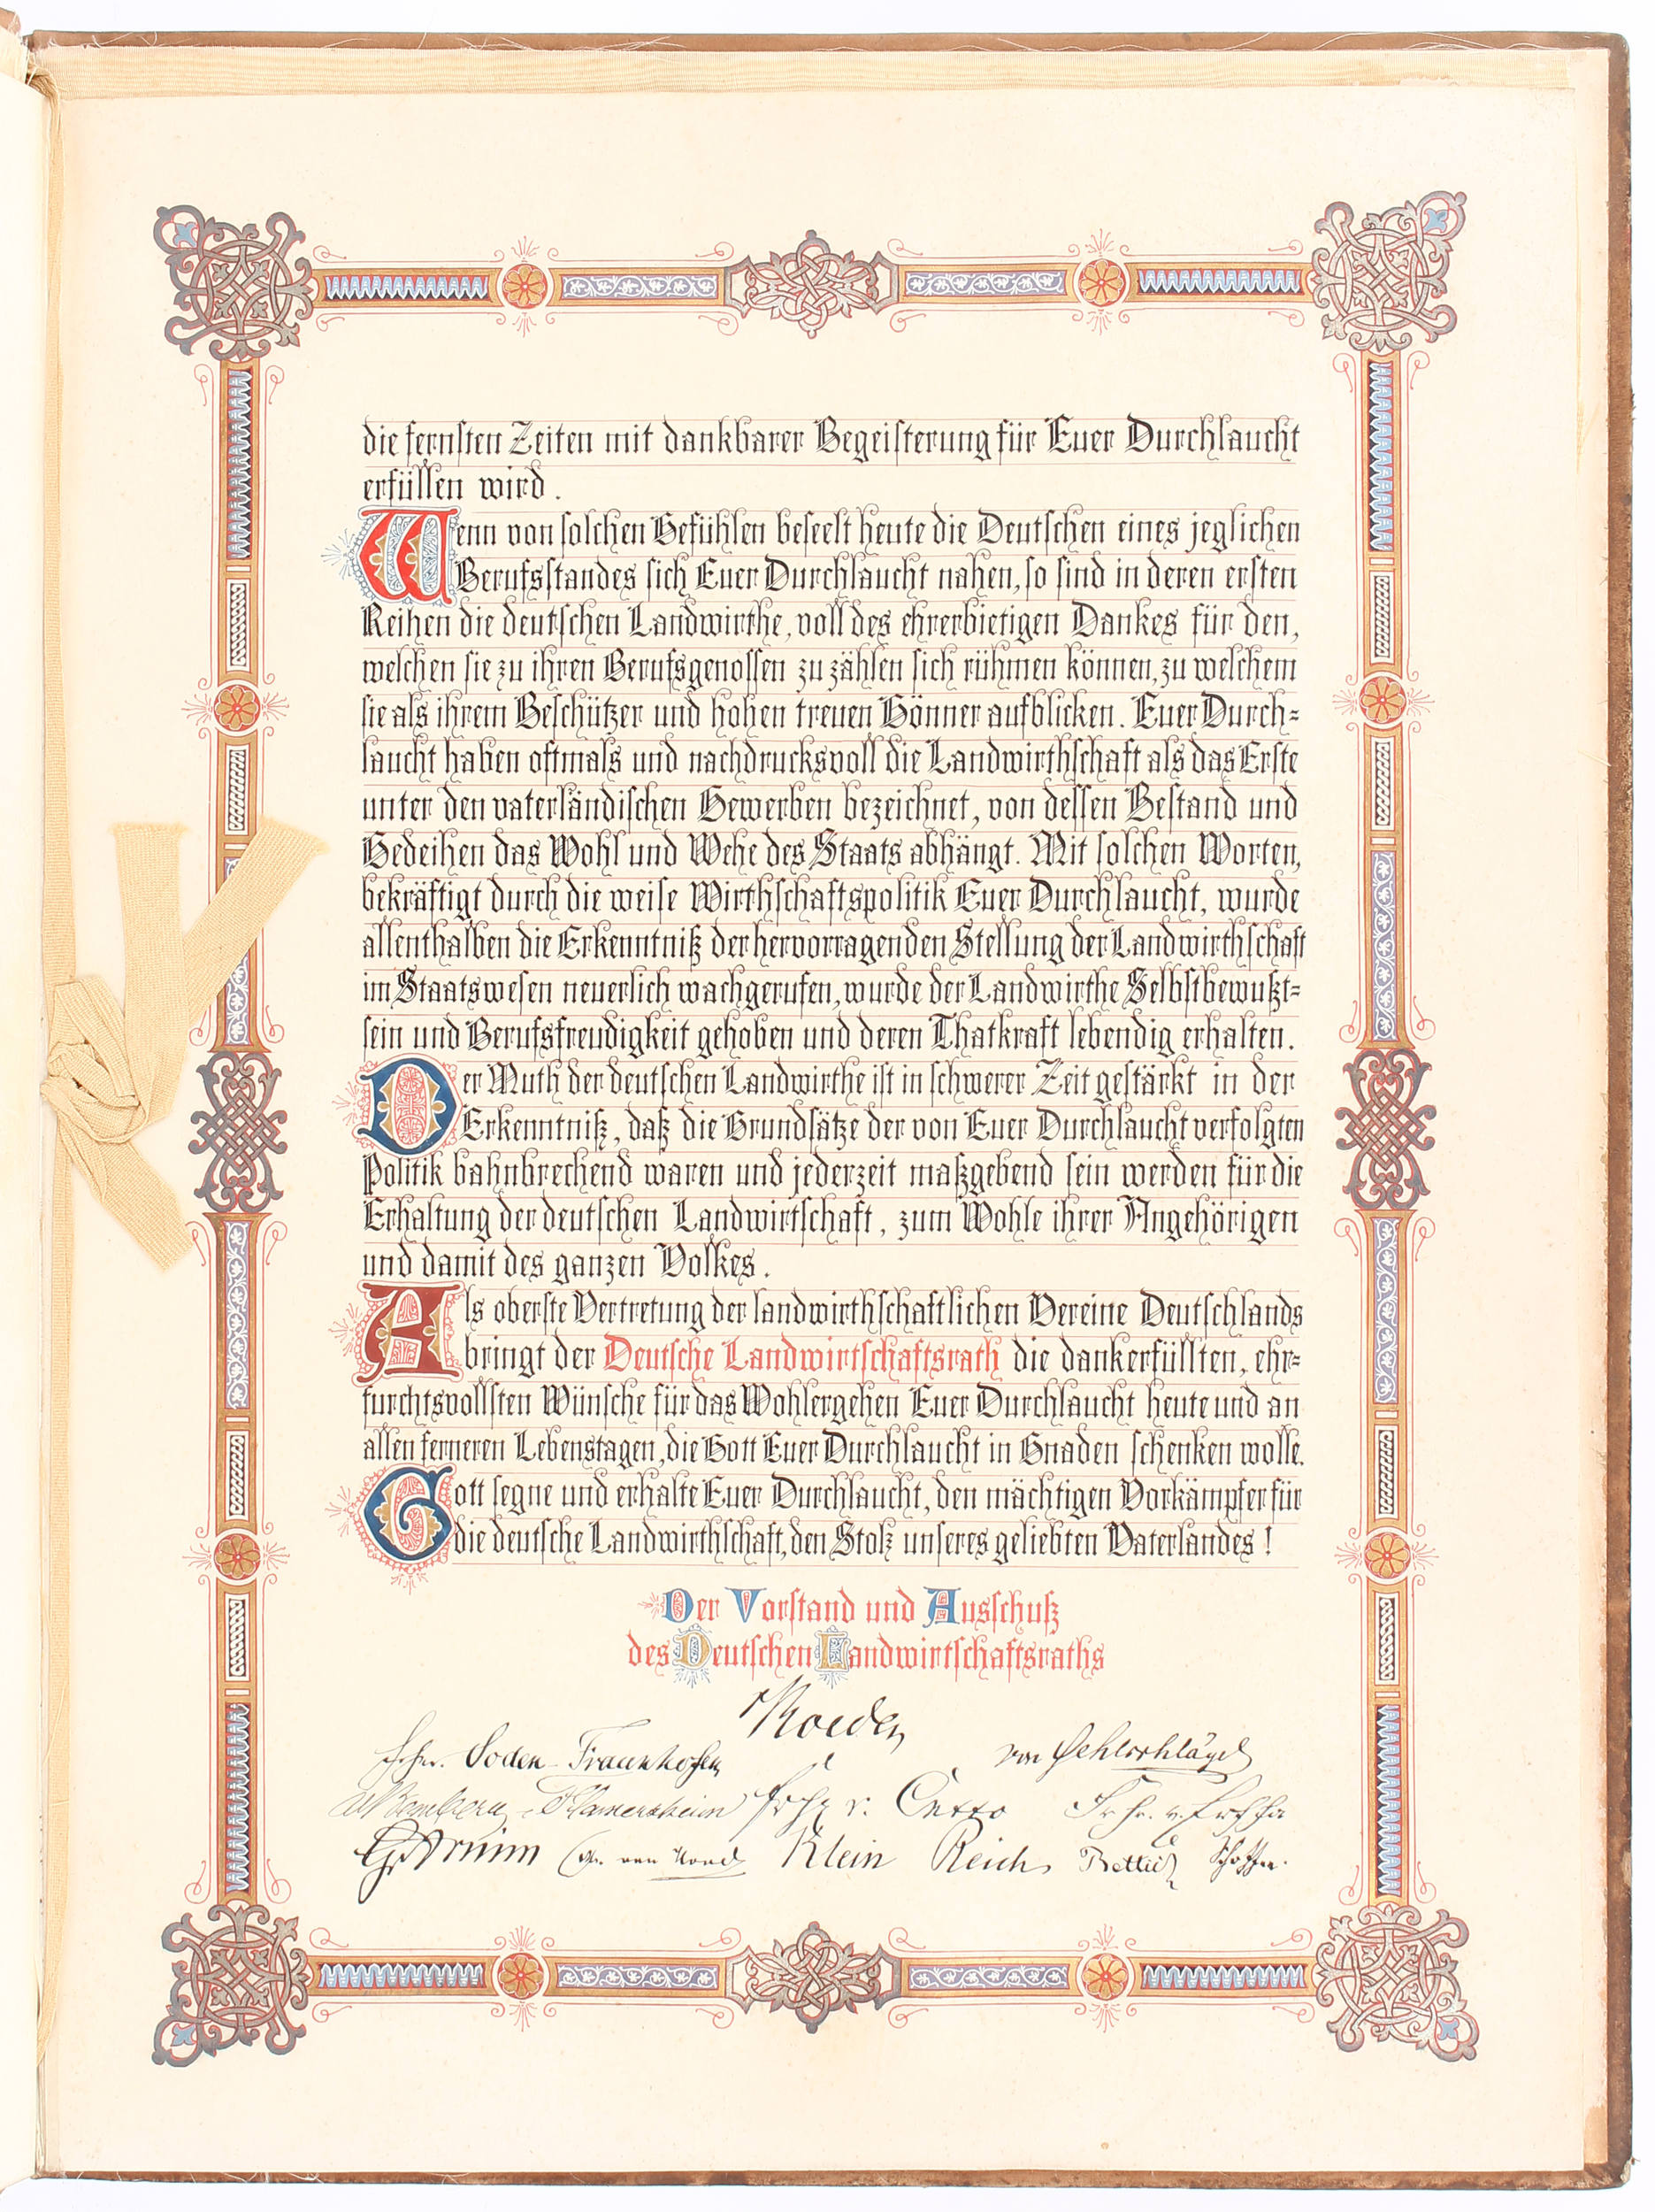 die fernsten Zeiten mit dankbarer Begeisterung für Euer Durchlaucht
erfüllen wird.
Wenn von solchen Gefühlen beseelt heute die Deutschen eines jeglichen
Berufsstandes sich Euer Durchlaucht nahen, so sind in deren ersten
Reihen die deutschen Landwirthe, voll des ehrerbietigen Dankes für den,
welchen sie zu ihren Berufsgenossen zu zählen sich rühmen können, zu welchem
sie als ihrem Beschützer und hohen treuen Gönner aufblicken. Euer Durch=
laucht haben oftmals und nachdrucksvoll die Landwirthschaft als das Erste
unter den vaterländischen Gewerben bezeichnet, von dessen Bestand und
Gedeihen das Wohl und Wehe des Staats abhängt. Mit solchen Worten,
bekräftigt durch die weise Wirthschaftspolitik Euer Durchlaucht, wurde
allenthalben die Erkenntniß der hervorragenden Stellung der Landwirthschaft
im Staatswesen neuerlich wachgerufen, wurde der Landwirthe Selbstbewußt=
sein und Berufsfreudigkeit gehoben und deren Thatkraft lebendig erhalten.
Der Muth der deutschen Landwirthe ist in schwerer Zeit gestärkt in der
Erkenntniß, daß die Grundsätze der von Euer Durchlaucht verfolgten
Politik bahnbrechend waren und jederzeit maßgebend sein werden für die
Erhaltung der deutschen Landwirtschaft, zum Wohle ihrer Angehörigen
und damit des ganzen Volkes.
Als oberste Vertretung der landwirthschaftlichen Vereine Deutschlands
bringt der Deutsche Landwirtschaftsrath die dankerfüllten, ehr=
furchtsvollsten Wünsche für das Wohlergehen Euer Durchlaucht heute und an
allen ferneren Lebenstagen, die Gott Euer Durchlaucht in Gnaden schenken wolle.
Gott segne und erhalte Euer Durchlaucht, den mächtigen Vorkämpfer für
die deutsche Landwirthschaft, den Stolz unseres geliebten Vaterlandes!
Der Vorstand und Ausschuß
des Deutschen Landwirtschaftsraths
Roeder
Frhr. Soden-Fraunhofen von Oehlschlägel
Frhr v. Cetto Frhr. v.
Arnim Klein Reich